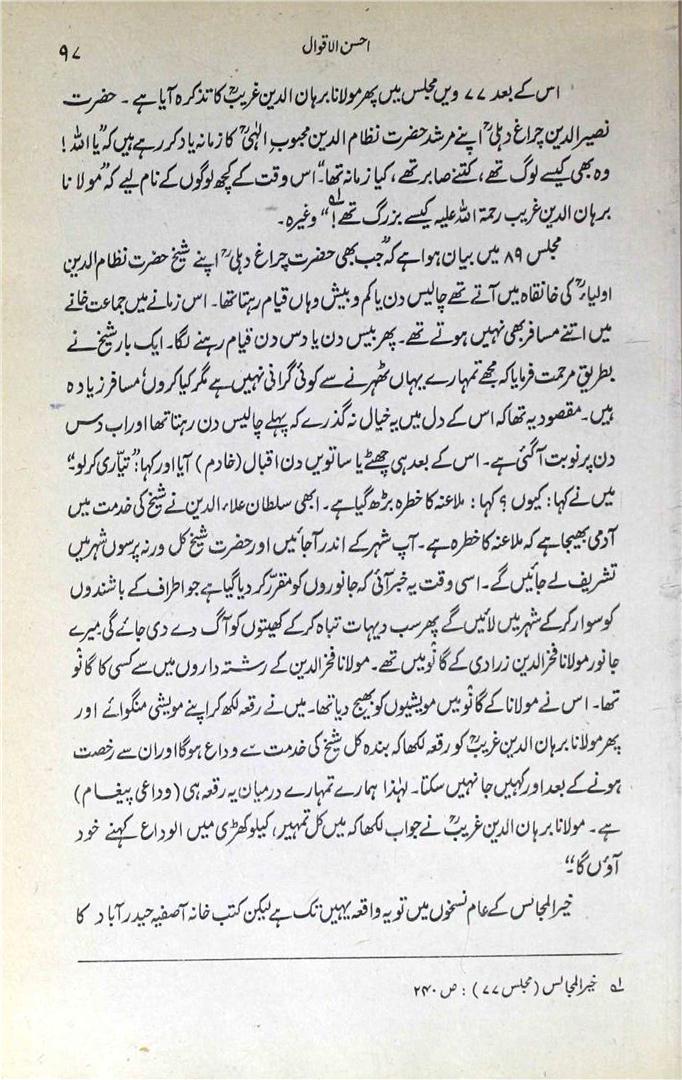 احسن الاقوال
۹۷
اس کے بعد ۷۷ ویں مجلس میں پھر مولانا برہان الدین غریبؒ کا تذکرہ آیا ہے ۔ حضرت
نصیر الدین چراغ دہلیؒ اپنے مرشد حضرت نظام الدین محبوب الٰہیؒ کا زمانہ یاد کر رہے ہیں کہ ”یا اللہ !
وہ بھی کیسے لوگ تھے ، کتنے صابر تھے ، کیا زمانہ تھا“۔ اس وقت کے کچھ لوگوں کے نام لیے کہ ”مولانا
برہان الدین غریب رحمۃ اللہ علیہ کیسے بزرگ تھے !“ لہ وغیرہ ۔
مجلس ۸۹ میں بیان ہوا ہے کہ ”جب بھی حضرت چراغ دہلیؒ اپنے شیخ حضرت نظام الدین
اولیاءؒ کی خانقاہ میں آتے تھے چالیس دن یا کم و بیش وہاں قیام رہتا تھا۔ اس زمانے میں جماعت خانے
میں اتنے مسافر بھی نہیں ہوتے تھے ۔ پھر بیس دن یا دس دن قیام رہنے لگا۔ ایک بار شیخ نے
بطریق مرحمت فرمایا کہ مجھے تمہارے یہاں ٹھہرنے سے کوئی گرانی نہیں ہے مگر کیا کروں‘ مسافر زیادہ
ہیں۔ مقصود یہ تھا کہ اس کے دل میں یہ خیال نہ گذرے کہ پہلے چالیس دن رہتا تھا اور اب دس
دن پر نوبت آگئی ہے ۔ اس کے بعد ہی چھٹے یا ساتویں دن اقبال (خادم) آیا اور کہا: ”تیاری کر لو۔“
میں نے کہا : کیوں ؟ کہا : ملاعنہ کا خطرہ بڑھ گیا ہے ۔ ابھی سلطان علاء الدین نے شیخ کی خدمت میں
آدمی بھیجا ہے کہ ملاعنہ کا خطرہ ہے ۔ آپ شہر کے اندر آجائیں اور حضرت شیخ کل ورنہ پرسوں شہر میں
تشریف لے جائیں گے ۔ اسی وقت یہ خبر آئی کہ جانوروں کو مقرّر کر دیا گیا ہے جو اطراف کے باشندوں
کو سوار کر کے شہر میں لائیں گے پھر سب دیہات تباہ کر کے کھیتوں کو آگ دے دی جائے گی میرے
جانور مولانا فخر الدین زرادی کے گانو میں تھے ۔ مولانا فخر الدین کے رشتہ داروں میں سے کسی کا گانو
تھا۔ اس نے مولانا کے گانو میں مویشیوں کو بھیج دیا تھا۔ میں نے رقعہ لکھ کر اپنے مویشی منگوائے اور
پھر مولانا برہان الدین غریبؒ کو رقعہ لکھا کہ بندہ کل شیخ کی خدمت سے وداع ہوگا اور ان سے رخصت
ہونے کے بعد اور کہیں جا نہیں سکتا۔ لہٰذا ہمارے تمہارے درمیان یہ رقعہ ہی (وداعی پیغام)
ہے ۔ مولانا برہان الدین غریبؒ نے جواب لکھا کہ میں کل تمہیں، کیلوکھڑی میں الوداع کہنے خود
آؤں گا۔“
خیر المجالس کے عام نسخوں میں تو یہ واقعہ یہیں تک ہے لیکن کتب خانہ آصفیہ حیدرآباد کا
لہ خیر المجالس (مجلس ۷۷) : ص ۲۴۰